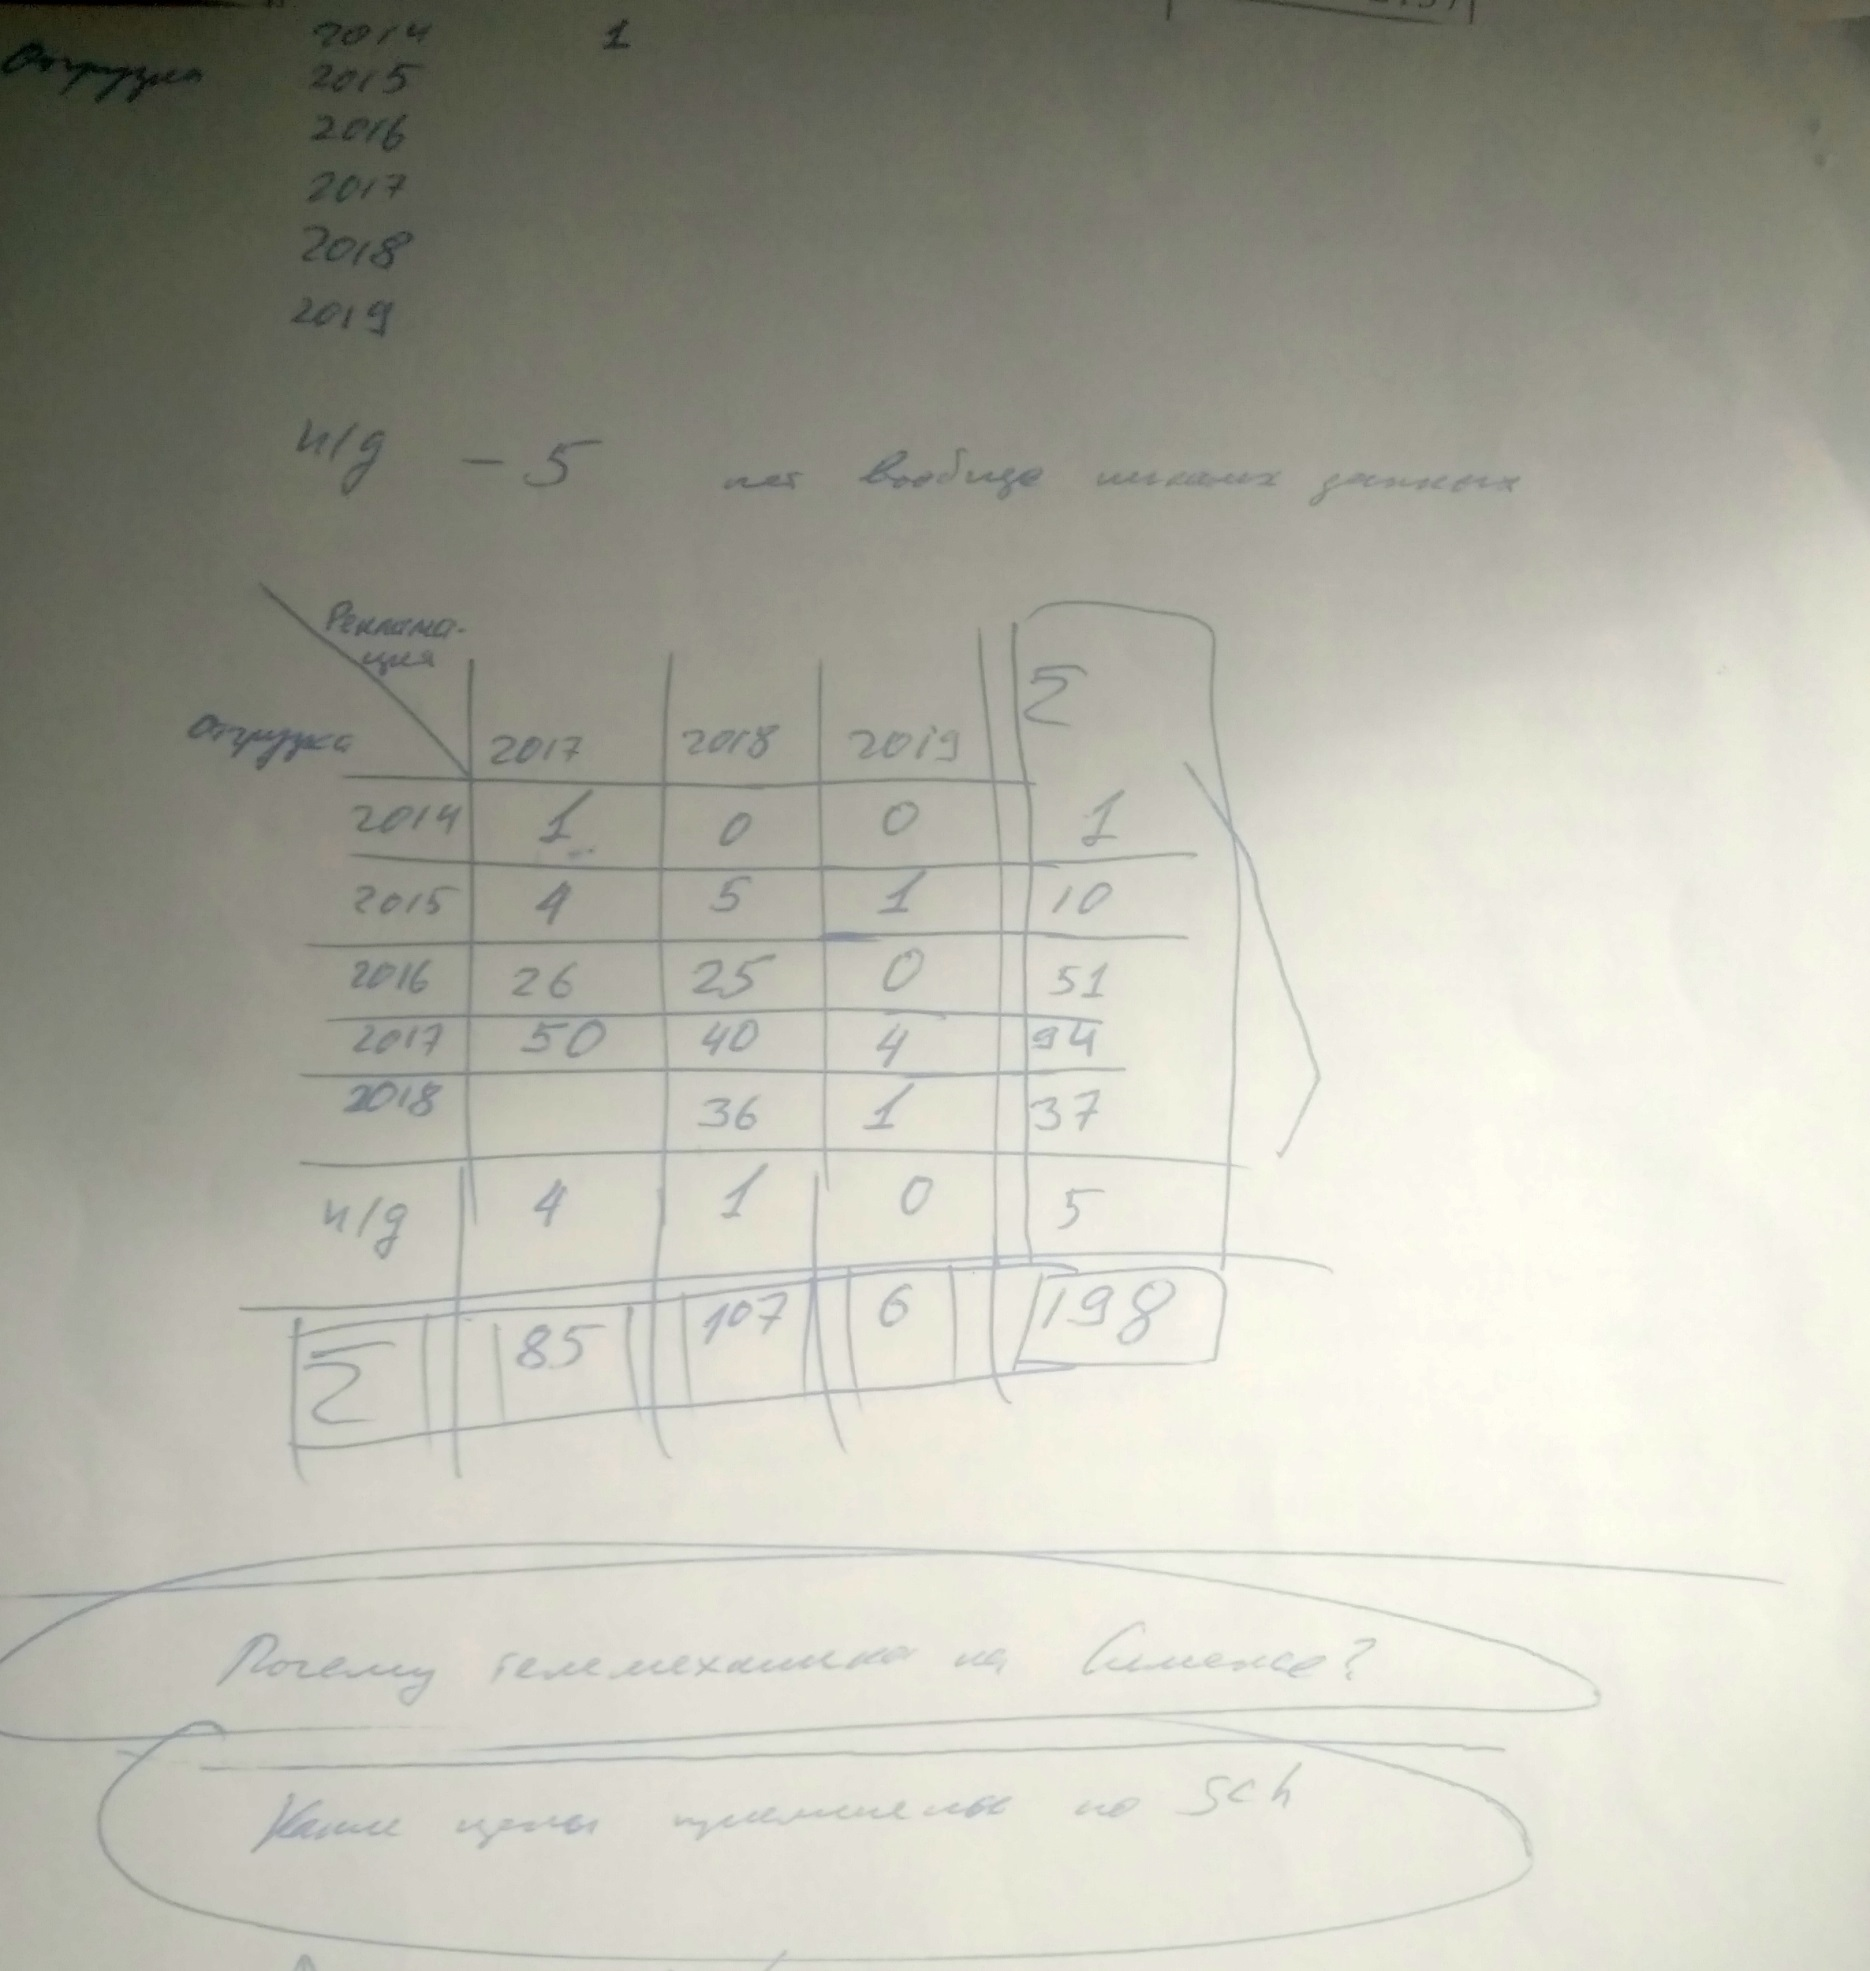 2014 1
Отгрузка 2015
2016
2017
2018
2019
н/д – 5 нет вообще никаких данных
Реклама-
ция
Отгрузка 2017 2018 2019 Σ
2014 1 0 0 1
2015 4 5 1 10
2016 26 25 0 51
2017 50 40 4 94
2018 36 1 37
н/д 4 1 0 5
Σ 85 107 6 198
Почему телемеханика на Сименсе?
Какие цены приемлемы по Sch